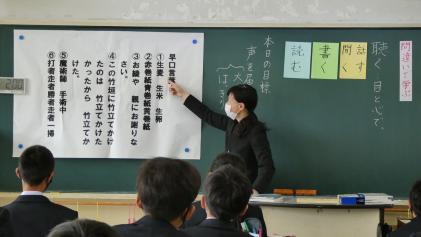 間違いで学ぶ
聴く 目と心で、
話す
聞く
書く
読む
本日の目標
声を届
大
はき
早口言葉
①生麦 生米 生卵
②赤巻紙青巻紙黄巻紙
③お綾や 親にお謝りな
さい。
④この竹垣に竹立てかけ
たのは 竹立てかけた
かったから 竹立てか
けた。
⑤魔術師 手術中
⑥打者走者勝者走者一掃